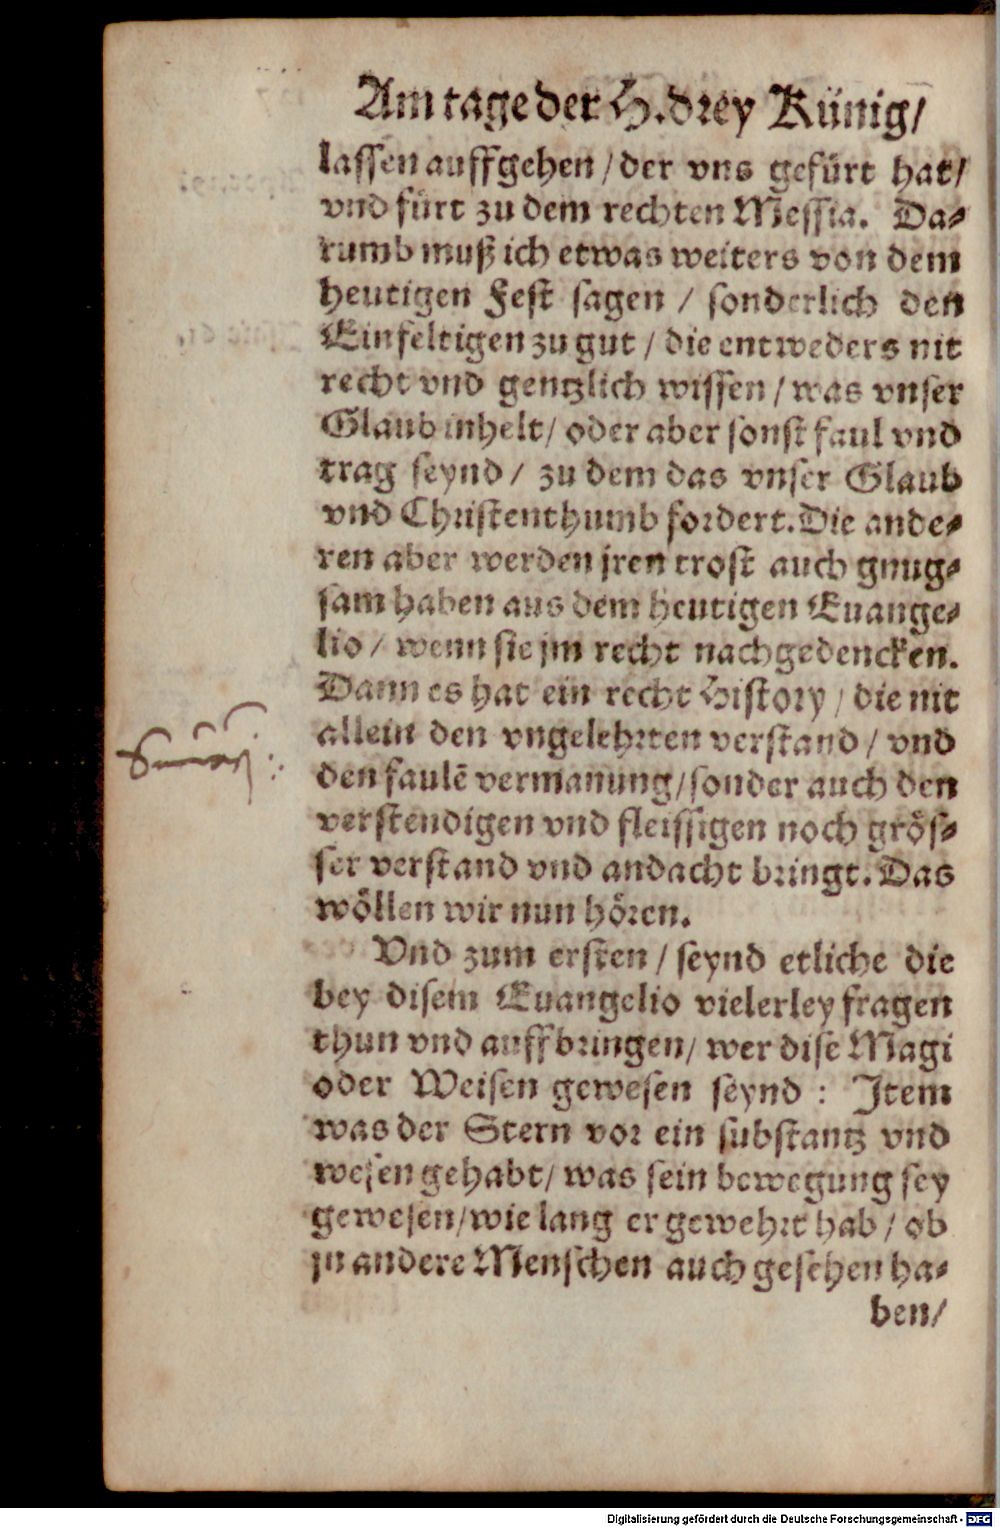 Am tage der H. drey Künig/
lassen auffgehen / der vns gefürt hat/
vnd fürt zu dem rechten Messia. Da⸗
rumb muß ich etwas weiters von dem
heutigen Fest sagen / sonderlich den
Einfeltigen zu gut / die entweders nit
recht vnd gentzlich wissen / was vnser
Glaub inhelt/ oder aber sonst faul vnd
trag seynd / zu dem das vnser Glaub
vnd Christenthumb fordert. Die ande⸗
ren aber werden jren trost auch gnug⸗
sam haben aus dem heutigen Euange⸗
lio / wenn sie jm recht nachgedencken.
Dann es hat ein recht History / die nit
allein den vngelehrten verstand / vnd
den faulē vermanung/sonder auch den
verstendigen vnd fleissigen noch grös⸗
ser verstand vnd andacht bringt. Das
wöllen wir nun hören.
Vnd zum ersten / seynd etliche die
bey disem Euangelio vielerley fragen
thun vnd auffbringen/ wer dise Magi
oder Weisen gewesen seynd : Item
was der Stern vor ein substantz vnd
wesen gehabt/ was sein bewegung sey
gewesen/wie lang er gewehrt hab / ob
jn andere Menschen auch gesehen ha⸗
ben/
Digitalisierung gefördert durch die Deutsche Forschungsgemeinschaft - DFG